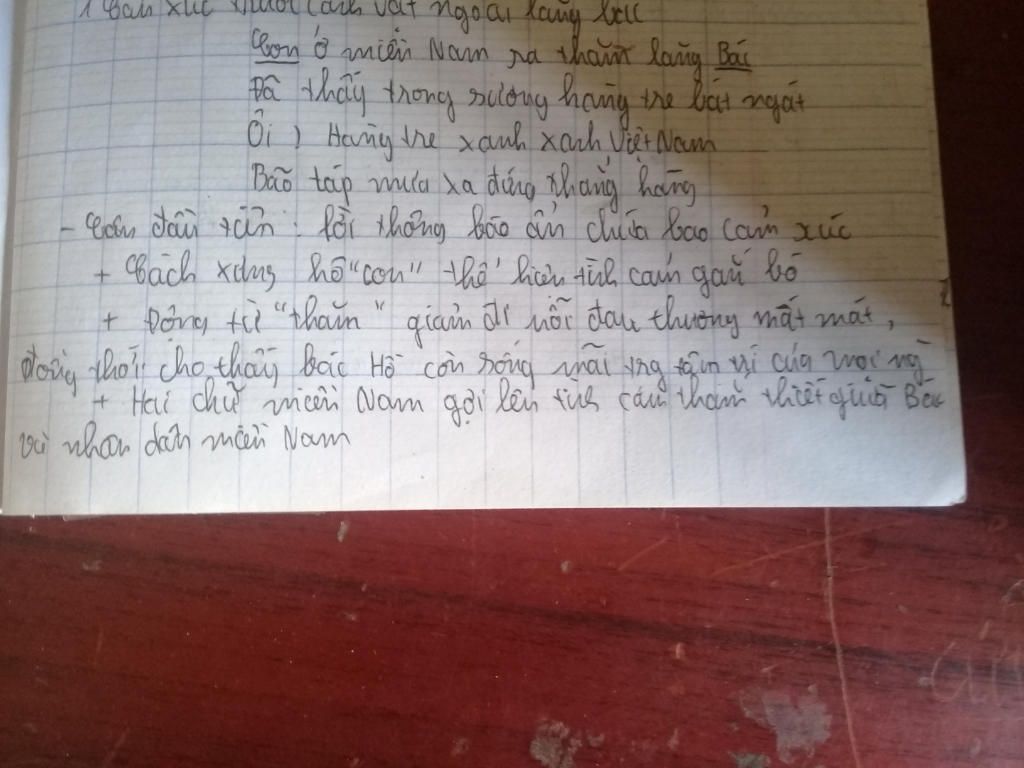 1 Cảm xúc trước cảnh vật ngoài lăng Bác
Con ở miền Nam ra thăm lăng Bác
Đã thấy trong sương hàng tre bát ngát
Ôi ! Hàng tre xanh xanh Việt Nam
Bão táp mưa xa đứng thẳng hàng
- Câu đầu tiên : lời thông báo ẩn chứa bao cảm xúc
+ Cách xưng hô "con" thể hiện tình cảm gắn bó
+ Động từ "thăm" giảm đi nỗi đau thương mất mát,
đồng thời cho thấy bác Hồ còn sống mãi trg tâm trí của mọi ng
+ Hai chữ miền Nam gợi lên tình cảm thắm thiết giữa Bác
và nhân dân miền Nam